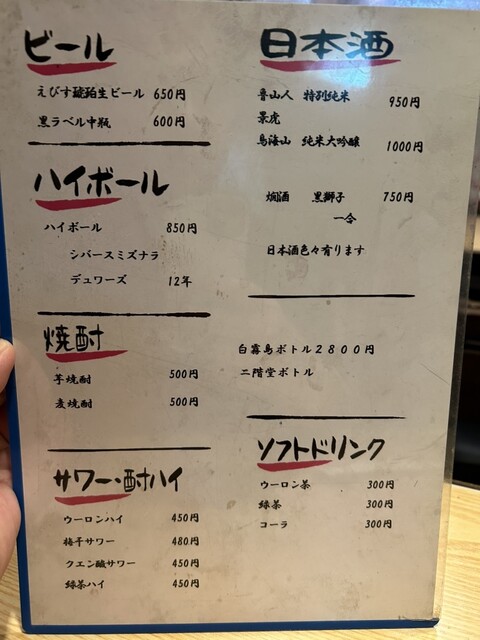 ビール
えびす琥珀生ビール 650円
黒ラベル中瓶 600円
ハイボール
ハイボール 850円
シバースミズナラ
デュワーズ 12年
焼酎
芋焼酎 500円
麦焼酎 500円
サワー・酎ハイ
ウーロンハイ 450円
梅干サワー 480円
クエン酸サワー 450円
緑茶ハイ 450円
日本酒
魯山人 特別純米 950円
景虎
鳥海山 純米大吟醸 1000円
燗酒 黒獅子 750円
一会
日本酒色々有ります
白霧島ボトル2800円
二階堂ボトル
ソフトドリンク
ウーロン茶 300円
緑茶 300円
コーラ 300円